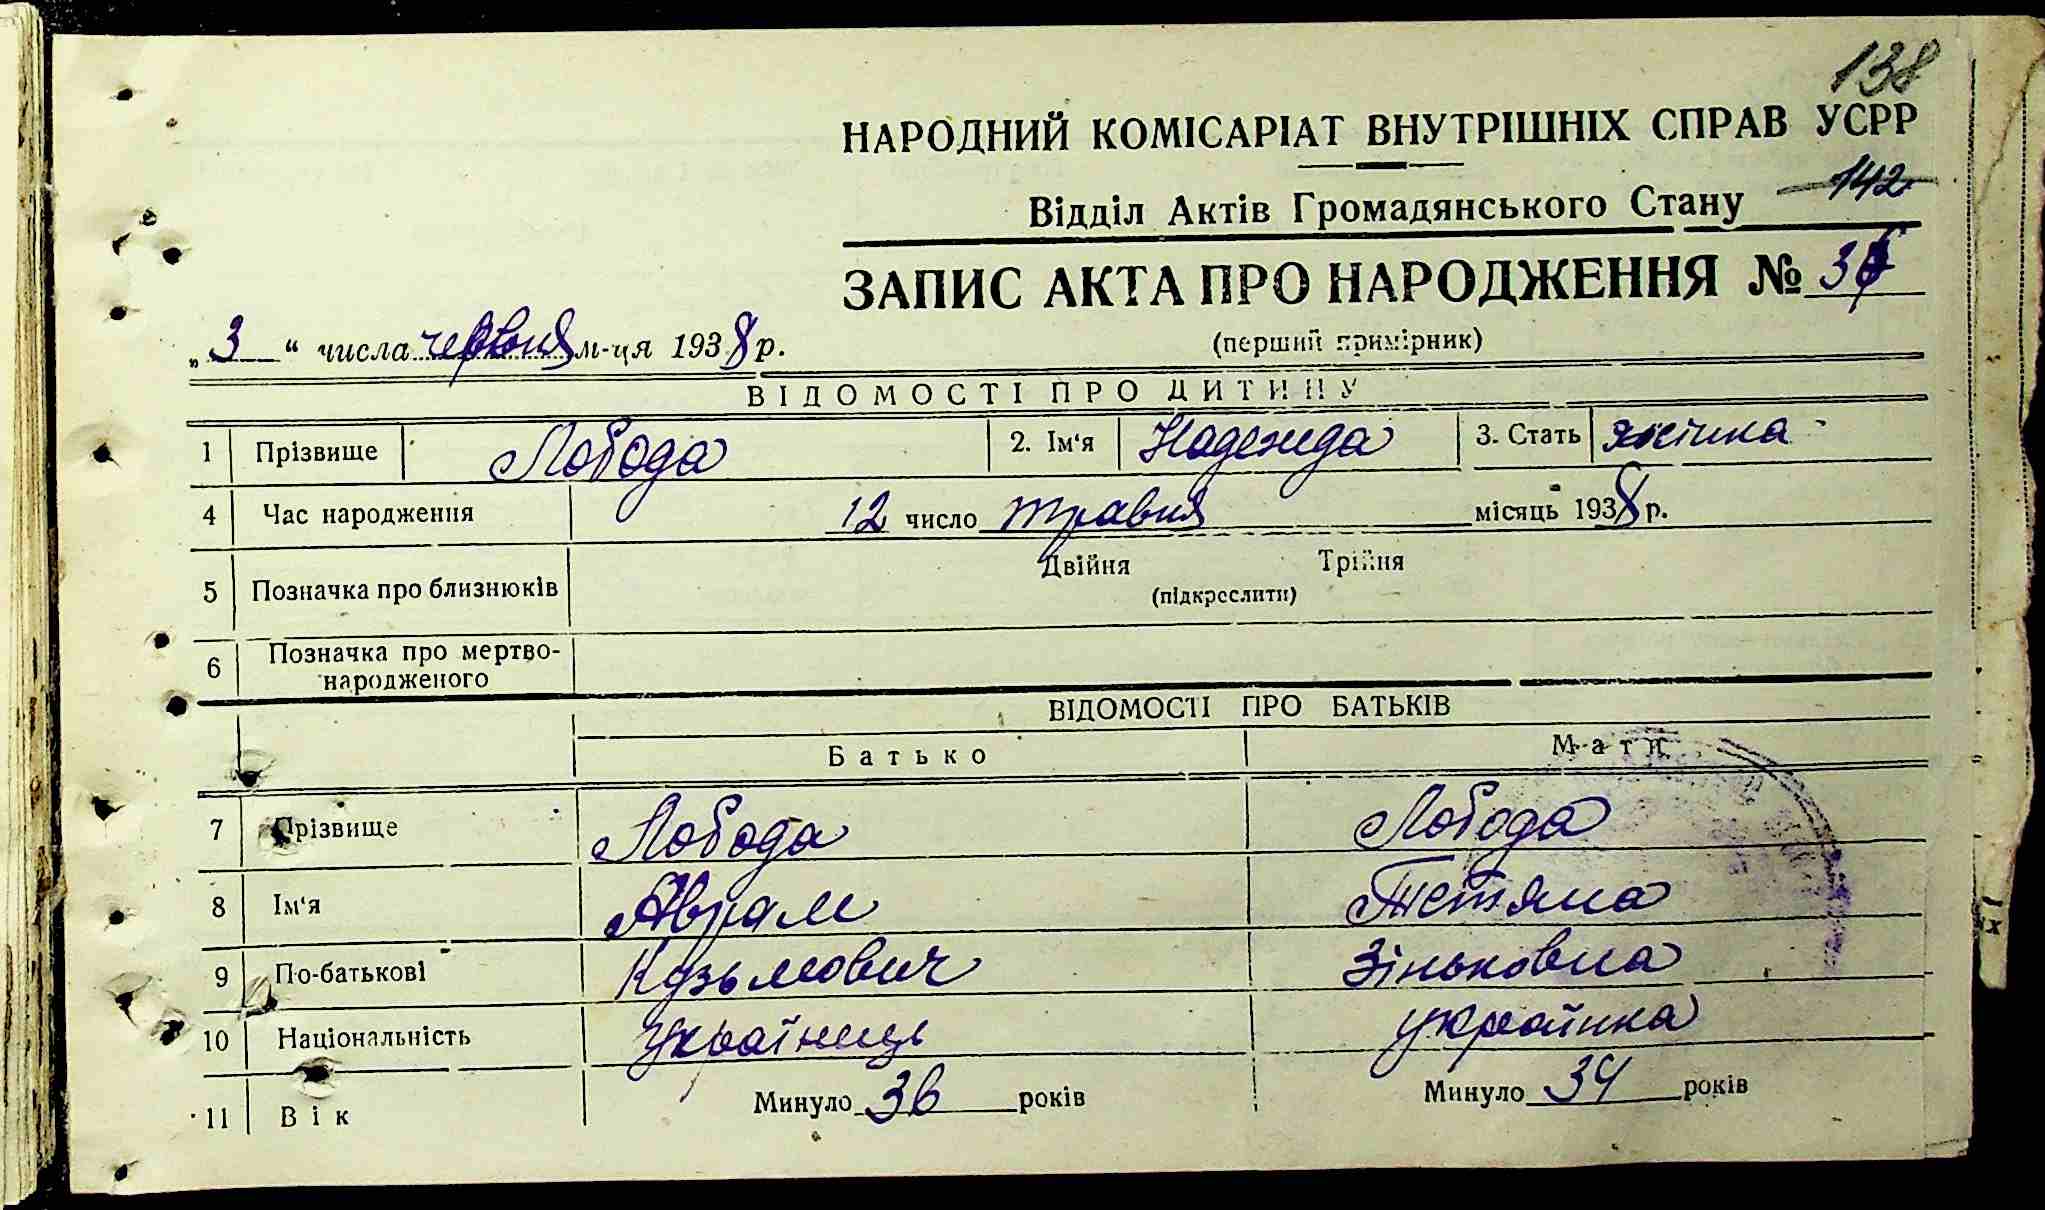 138
НАРОДНИЙ КОМІСАРІАТ ВНУТРІШНІХ СПРАВ УСРР
142
Відділ Актів Громадянського Стану
ЗАПИС АКТА ПРО НАРОДЖЕННЯ №
(перший примірник)
„3“ числа червня м-ця 1938 р.
ВІДОМОСТІ ПРО ДИТИНУ
1 Прізвище Лобода 2. Ім'я Надежида 3. Стать жінка
4 Час народження 12 число травня місяць 1938 р.
5 Позначка про близнюків Двійня Трійня
(підкреслити)
6 Позначка про мертво-
народженого
ВІДОМОСТІ ПРО БАТЬКІВ
Батько Мати
7 Прізвище Лобода Лобода
8 Ім'я Аврам Тетяна
9 По-батькові Кузьмович Зіньковна
10 Національність Українець українка
11 Вік Минуло 36 років Минуло 34 років